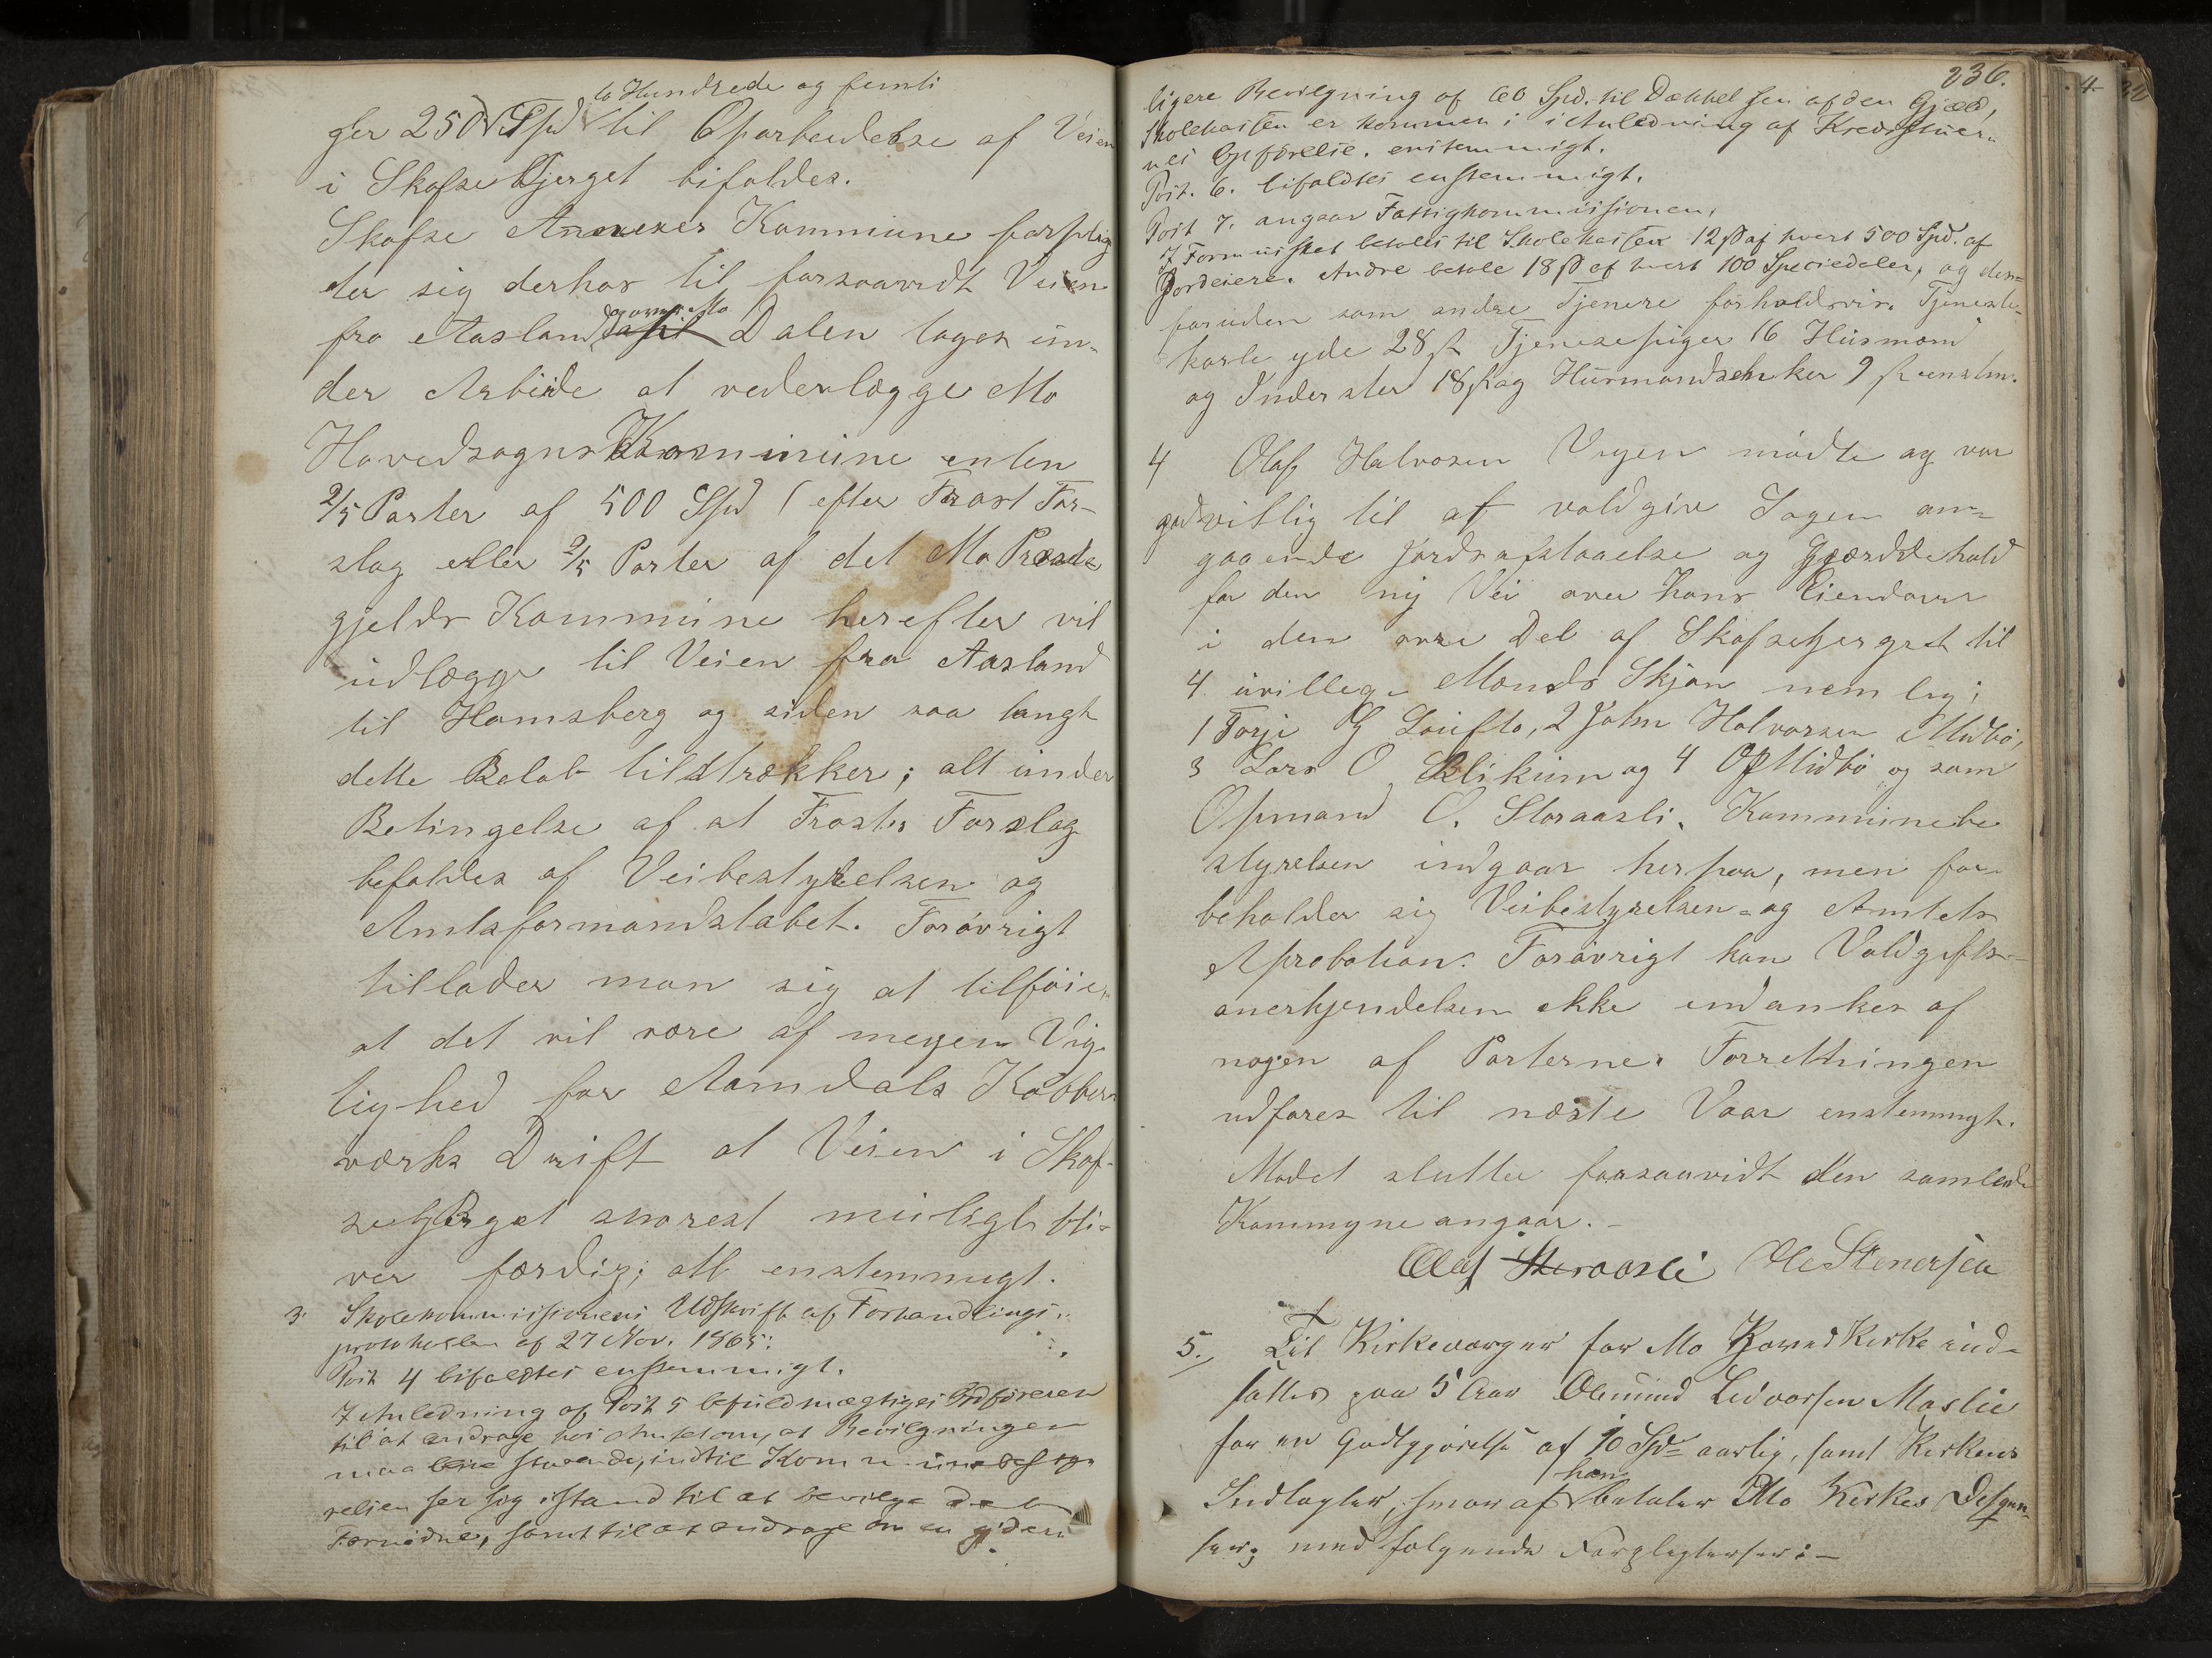 to Hundrede og femti
ger 250 Spd til Oparbeidelse af Veien
i Skafse Bjerget bifaldes.
Skafse Annexes Kommune forplig
ter sig derhos til forsaavidt Veien
fra Aasland og over Mo til Dalen tages un-
der Arbeide at vederlægge Mo
Hovedsogns Kommune enten
2/5 Parter af 500 Spd (efter Frost For-
slag eller 2/5 Parter af det Mo Præste
gjelds Kommune herefter vil
udlægge til Veien fra Aasland
til Hamsberg og siden saa langt
dette Beløb tilstrækker; alt under
Betingelse af at Frosts Forslag
befaldes af Veibestyrelsen og
Amtsformandskabet. Forøvrigt
tillader man sig at tilføie,
at det vil være af megen Vig-
tighed for Aamdals Kobber-
værks Drift at Veien i Skaf-
sebjerget snarest muligt bli-
ver færdig; alt enstemmigt.
3. Skolekommissionens Udskrift af Forhandlings-
protokollen af 27 Nov. 1865:
Post 4 bifaldtes enstemmigt.
I Anledning af Post 5 befuldmægtiges Ordføreren
til at andrage hos Amtet om, at Bevilgningen
maa staaende, indtil Kommunebesty-
relsen ser sig istand til at bevilge det
Fornødne, samt til at andrage om en yder-
236.
ligere Bevilgning af 60 Spd. til Dækkelsen af den Gjæld,
Skolekassen er kommen i i Anledning af Kredsstuer-
nes Opførelse. enstemmigt.
Post. 6. bifaldtes enstemmigt.
Post 7. angaar Fattigkommissionen.
I Formuesskat betales til Skolekassen 12 ß af hvert 500 Spd. af
Jordeiere. Andre betale 18 ß af hvert 100 Speciedaler, og des-
foruden som andre Tjenere forholdsvis. Tjeneste-
karle yde 28 ß Tjenestepiger 16 Husmænd
og Inderster 18 ß og Husmandsenker 9 ß enstm.
4 Olaf Halvorsen Vegen mødte og var
godvillig til at voldgive Sagen an-
gaaende Jordsafstaaelse og Gjærdehold
for den ny Vei over hans Eiendomme
i den øvre Del af Skafsebjerget til
4 uvillige Mænds Skjøn nemlig:
1 Torje G Loufto, 2 John Halvorsen Midbø,
3 Lars O. Blikum og 4 O P Midbø og som
Opmand O. Storaasli. Kommunebe
styrelsen indgaar herpaa, men for-
beholder sig Veibestyrelsen- og Amtets
Aprobation. Forøvrigt kan Voldgifts-
anerkjendelsen ikke indankes af
nogen af Parterne. Forretningen
udføres til næste Vaar enstemmigt.
Mødet sluttes forsaavidt den samlede
Kommyne angaar.-
Olaf Storaasli Ole Stenersen
5. Til Kirkeværger for Mo Hoved Kirke ind-
sattes paa 5 Aar Aamund Ledvorsen Moslie
for en Godtgjørelse af 10 Spd aarlig, samt Kirkens
Indtægter, hvoraf han betaler Mo Kirkes Despen-
ser; med følgende Forpligtelser:-